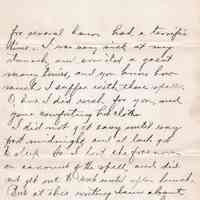 for several hours had a terrific
time. I was very sick at my
stomach, and vomited a great
many times, and you know how
much I suffer with these spells.
O, how I did wish for you, and
your comforting hot cloths.
I did not get easy until way
past midnight, and at last got
to sleep. So I lost the forenoon
on account of the spell, and did
not get out to work until after lunch.
But at this writing I am about